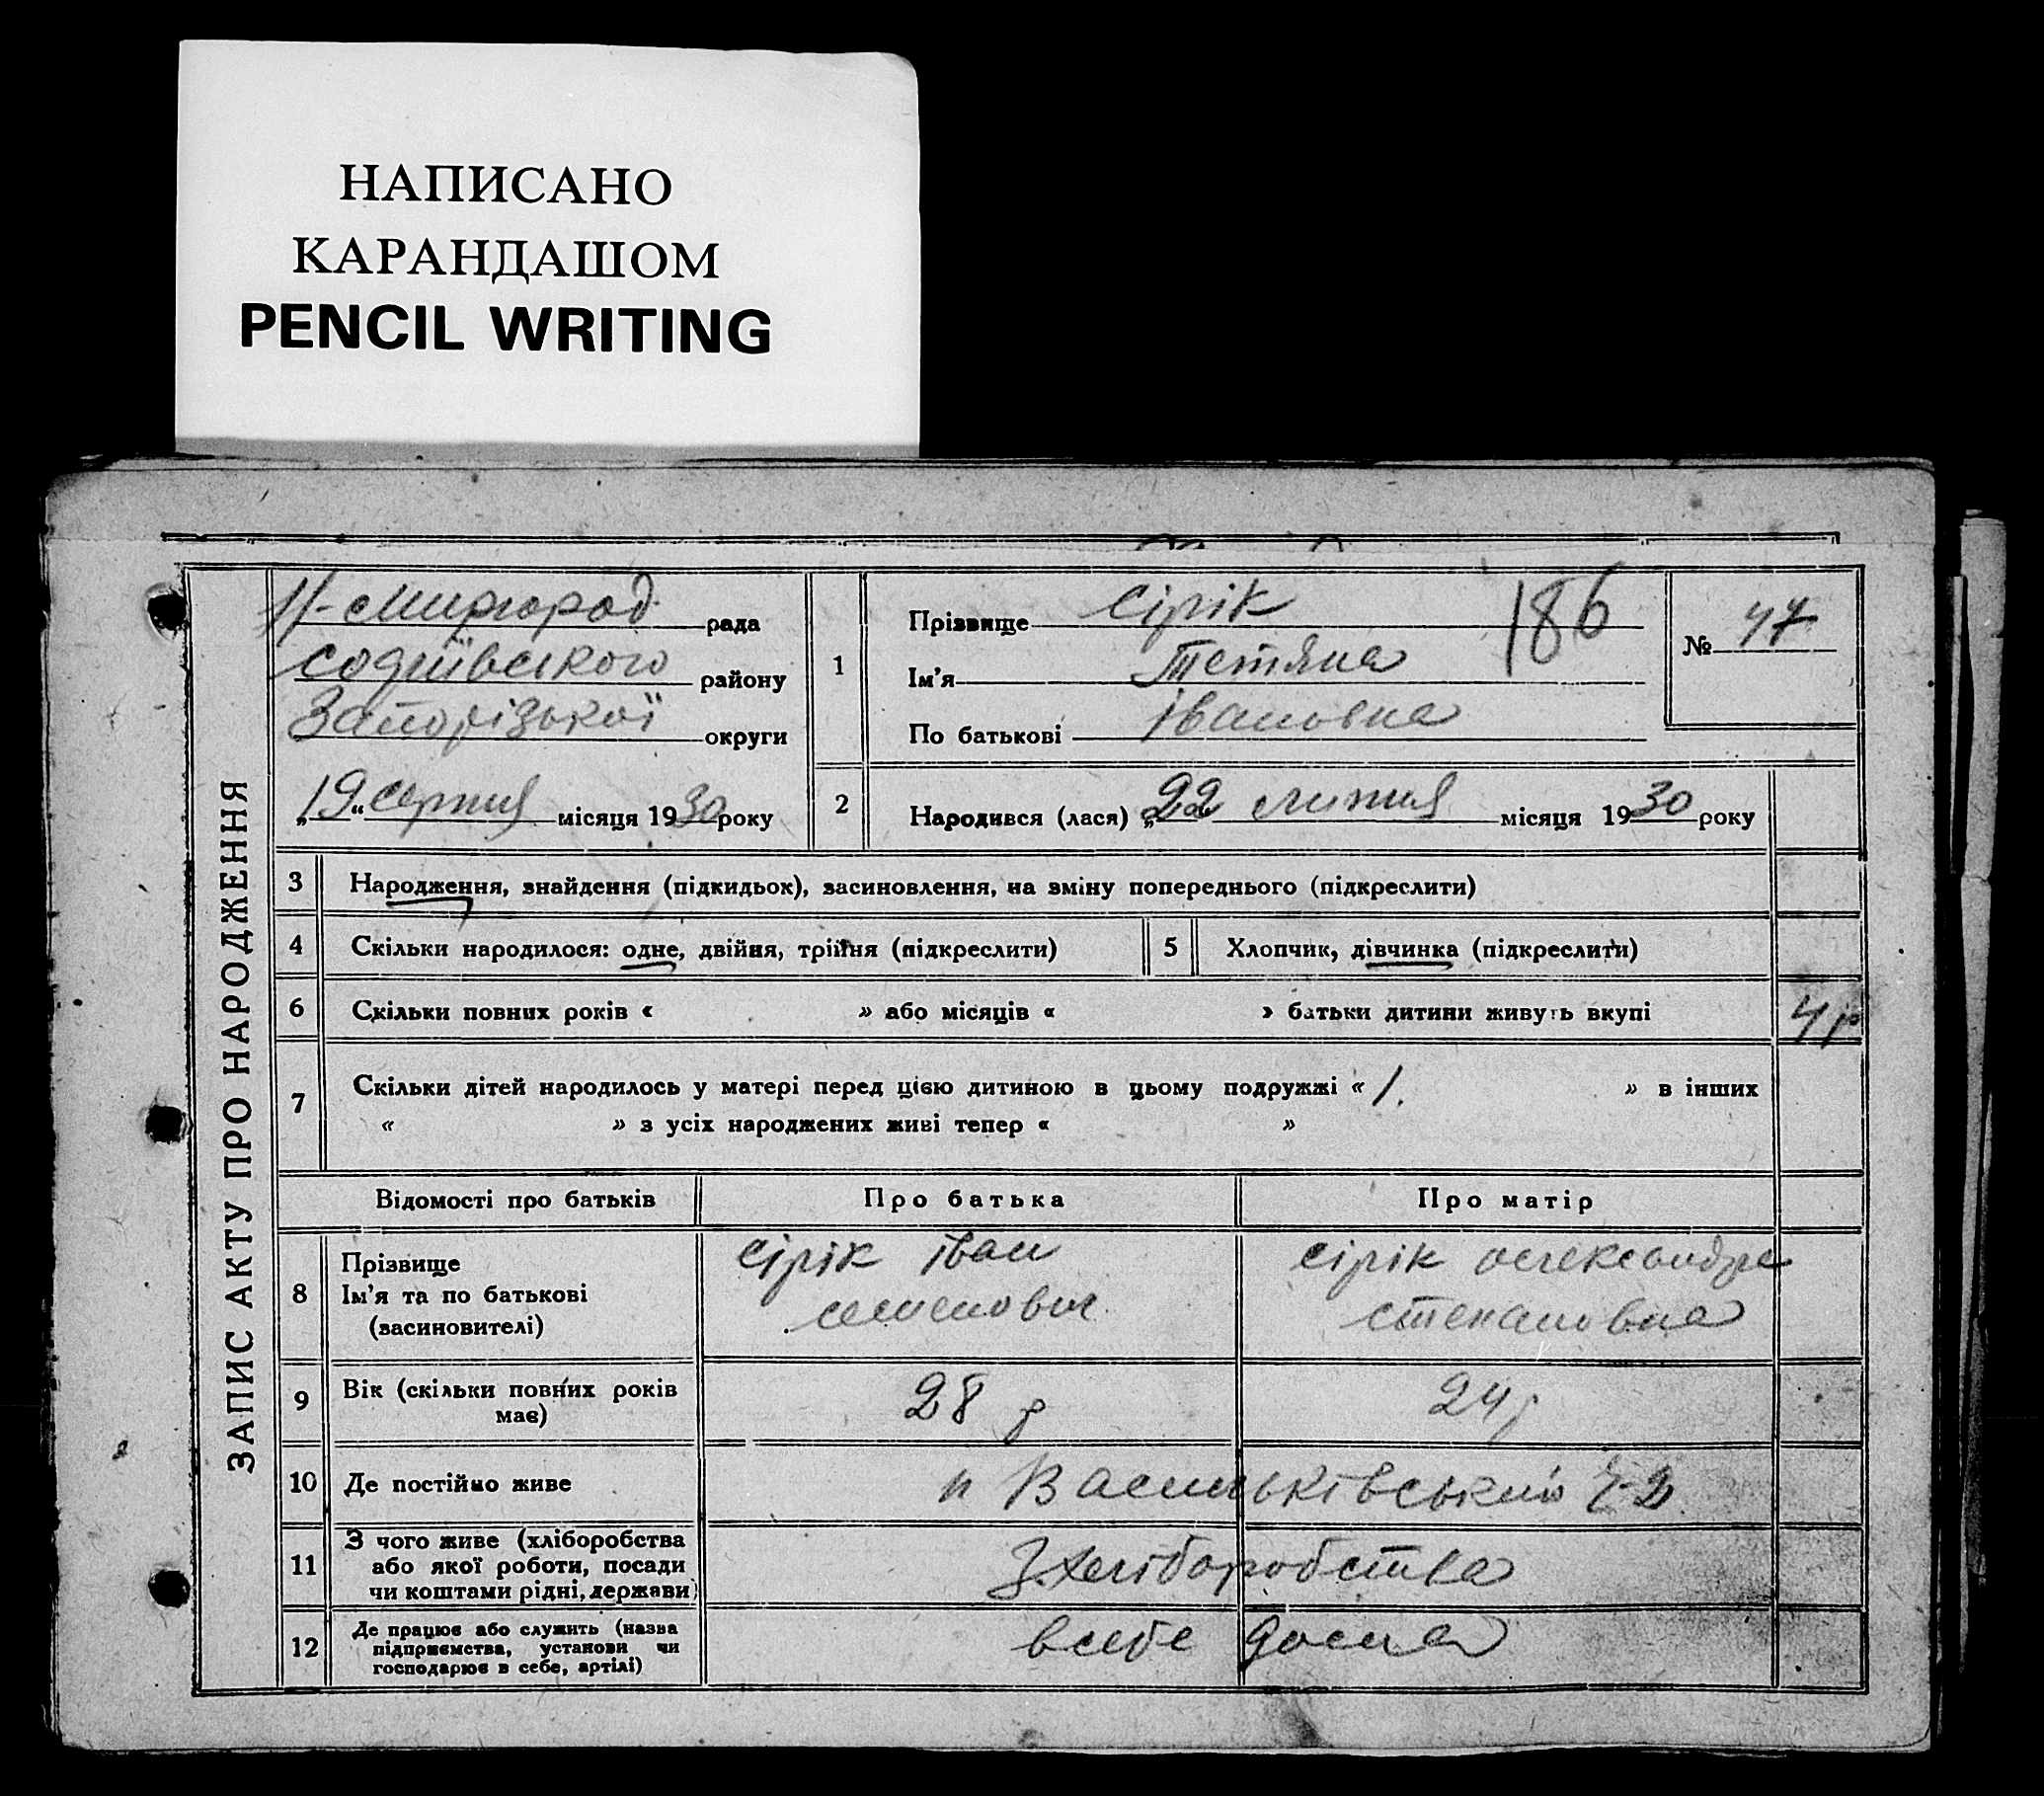 НАПИСАНО
КАРАНДАШОМ
PENCIL WRITING
ЗАПИС АКТУ ПРО НАРОДЖЕННЯ
Н-Миргород рада
софіївського району
Запорізької округи
„19“ серпня місяця 1930 року
1
Прізвище Сірік 186
Ім'я Тетяна
По батькові Івановна
№ 47
2 Народився (лася) „22 липня місяця 1930 року
3 Народження, знайдення (підкидьок), засиновлення, на зміну попереднього (підкреслити)
4 Скільки народилося: одне, двійня, трійня (підкреслити) 5 Хлопчик, дівчинка (підкреслити)
6 Скільки повних років « » або місяців « » батьки дитини живуть вкупі 4 р
7 Скільки дітей народилось у матері перед цією дитиною в цьому подружжі « 1. » в інших
« » з усіх народжених живі тепер « »
Відомості про батьків Про батька Про матір
8 Прізвище
Ім'я та по батькові
(засиновителі)
Сірік Іван
семенович
Сірік олександра
степановна
9 Вік (скільки повних років
має)
28 р 24 р
10 Де постійно живе
п Васильківський 2
11 З чого живе (хліборобства
або якої роботи, посади
чи коштами рідні, держави)
З хліборобства
12 Де працює або служить (назва
підприємства, установи чи
господарює в себе, артілі)
в себе дома